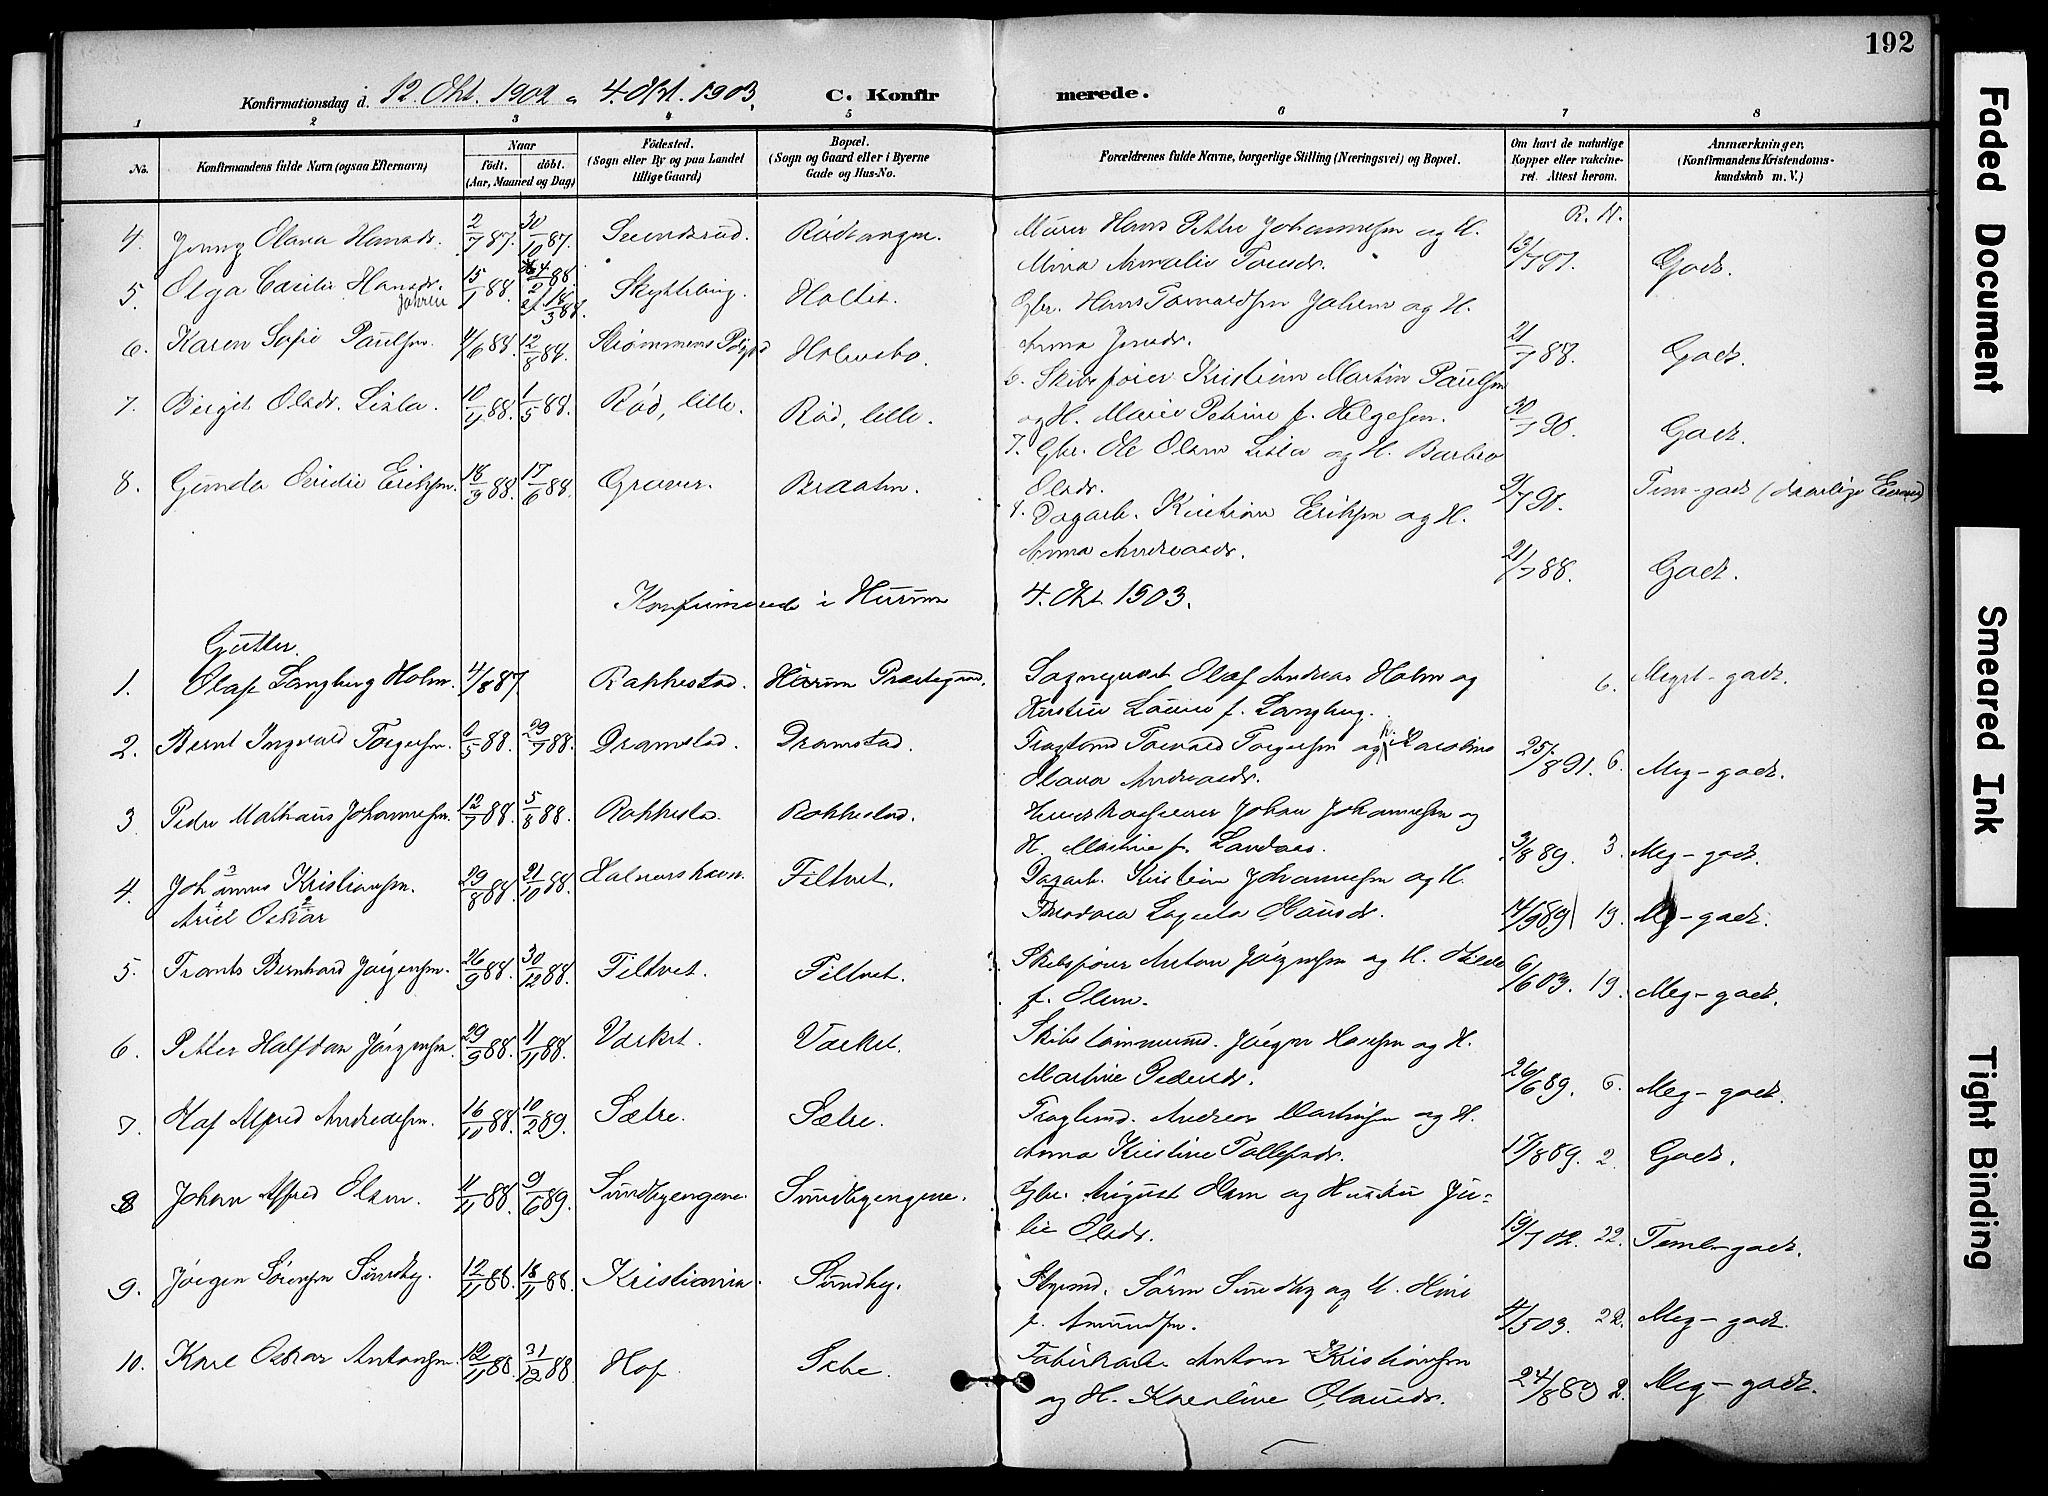 192
Konfirmationsdag d. 12. Okt. 1902 4. Okt. 1903. C. Konfirmerede.
1 2 3 4 5 6 7 8
No. Konfirmandens fulde Navn (ogsaa Efternavn) Naar født. døbt. (Aar, Maaned og Dag) Fødested. (Sogn eller By og paa Landet tillige Gaard) Bopæl. (Sogn og Gaard eller i Byerne Gade og Hus-No. Forældrenes fulde Navne, borgerlige Stilling (Næringsvei) og Bopæl. Om havt de naturlige Kopper eller vakcineret. Attest herom. Anmærkninger, (Konfirmandens Kristendomskundskab m. V.)
R. N.
4. Jenny Olava Hansdr. 2/7 87. 30/10 87. Rødtangen. Murer Hans Petter Johannesen og H.
Mina Amalie 13/7 97. Godt.
5. Olga Cæcilie Hansdr. Jahren 15/1 88. Holtet. Gbr. Hans Jahren og H.
Anna 21/7 88. Godt.
6. Karen Sofie Paulsen. 12/8 88. Holmsbo. 6. Skibsfører Kristian Martin Paulsen
og H. Marie Petrine f. Helgesen. 30/7 90. Godt.
7. Birgit Olsdr. Lisla. 1/5 88. Rød, lille. Rød, lille. 7. Gbr. Ole Olsen Lisla og H. Barbro
Olsdr. 9/7 90. Tem-godt (daarlige Evner)
8. Gunda Eriksen. 18/3 88. 17/6 88. Graver. Braaten. 8. Dagarb. Kristian Eriksen og H.
Anna Andreasdr. 21/7 88. Godt.
Konfirmerede i Hurum 4. Okt. 1903.
Gutter.
1. Olaf Langberg Holm. 4/8 87 Rakkestad. Hurum Prestegaard. Sogneprest Olaf Andreas Holm og
Kirstine Louise f. Langberg. 6. Meget-godt.
2. Bernt Ingvald Torgersen. 6/5 88. 29/7 88. Dramstad. Dramstad. Torvald Torgersen og H. Karoline
Olava Andreasdr. 25/8 91. 6. Meg-godt.
3 Peder Mathæus Johannesen. 12/7 88. 5/8 88. Rokkestad. Rokkestad. Johan Johannesen og
H. Martine f. 3/8 89. 3. Meg-godt.
4. Johannes Kristiansen. 29/8 88. 21/10 88. Filtvet. Dagarb. Kristian Johannesen og H.
Ariel Oskar Theodora 14/9 89 19. Meg-godt.
5. Frants Bernhard Jørgensen. 26/9 88. 30/12 88. Filtvet. Filtvet. Skibsfører Anton Jørgensen og H.
f. Olsen. 6/6 03. 19. Meg-godt.
6. Petter Halfdan Jørgensen. 29/9 88. 11/11 88. Værket. Værket. Skibstømmermd. Jørgen Hansen og H.
Martine Pedersdr. 26/6 89. 6. Meg-godt.
7. Olaf Alfred Andreasen. 16/10 88. 10/2 89. Sætre. Sætre. Andreas Martinsen og H.
Anna Kristine Tollefsdr. 17/8 89. 2. Godt.
8 Johan Alfred Olsen. 4/11 88. 9/6 89. Sundbyengene. Sundbyengene. Gbr. August Olsen og Hustru Ju-
lie Olsdr. 19/7 02. 22. Teml-godt.
9. Jørgen Sørensen Sundby. 12/11 88. 18/11 88. Kristiania. Sundby. Søren Sundby og H.
f. Amundsen. 4/5 03. 22. Meg-godt.
10. Karl Oskar Antonsen. 12/11 88. 31/12 88. Hof. Fabrikarb. Anton Kristiansen
og H. Karoline Olausdr. 24/8 89 2. Meg-godt.
Faded Document
Smeared Ink
Tight Binding